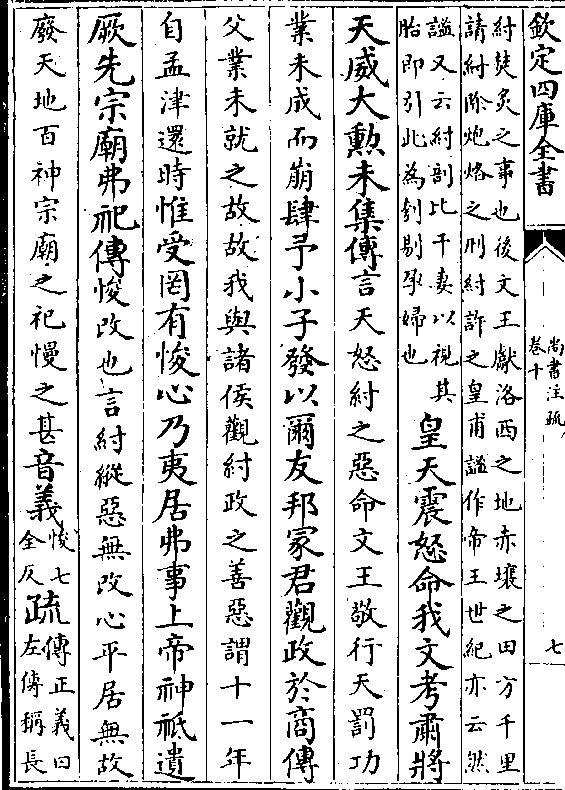 欽定四庫全書
尚書注疏
卷十
七
紂焚炙之事也後文王獻洛西之地赤壤之田方千里
請紂除炮烙之刑紂許之皇甫謐作帝王世紀亦云然
謐又云紂剖比干妻以視其
胎即引此為刳剔孕婦也
皇天震怒命我文考肅將
天威大勲未集傳言天怒紂之惡命文王敬行天罰功
業未成而崩肆予小子發以爾友邦冢君觀政於商傳
父業未就之故故我與諸侯觀紂政之善惡謂十一年
自孟津還時惟受罔有悛心乃夷居弗事上帝神祇遺
厥先宗廟弗祀傳悛改也言紂縱惡無改心平居無故
廢天地百神宗廟之祀慢之甚音義
悛七
全反
疏
傳正義曰
左傳稱長